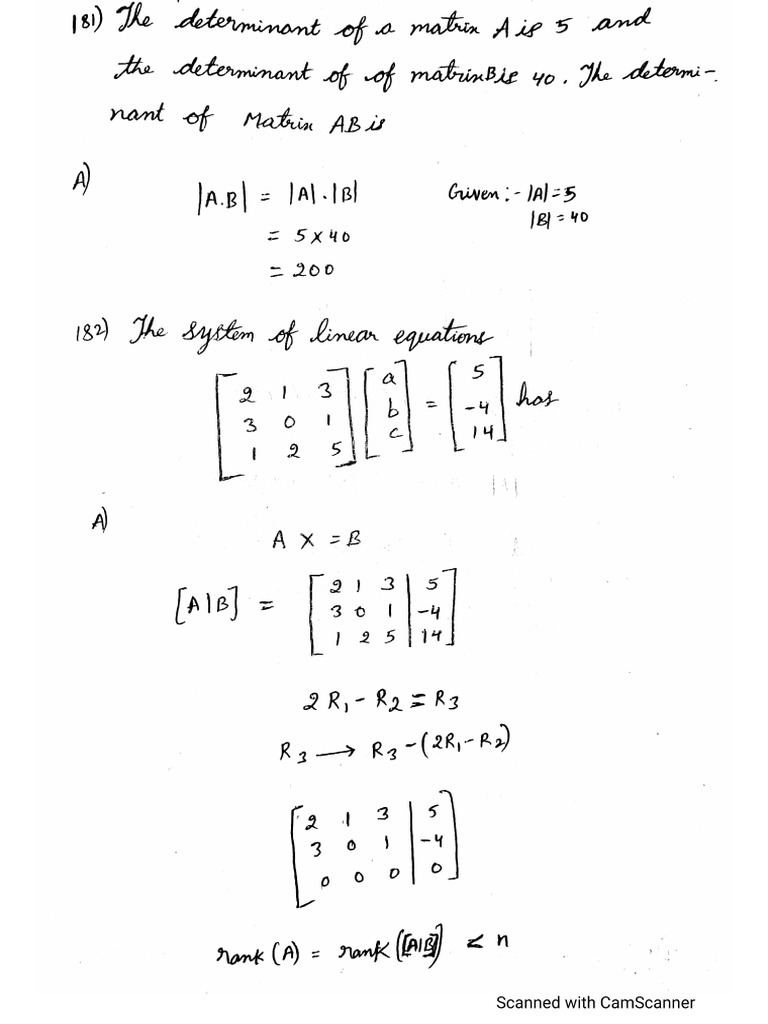 181) The determinant of a matrix A is 5 and
the determinant of of matrix B is 40. The determi-
nant of Matrix AB is
A) |A.B| = |A|.|B| Given :- |A|=5
= 5 x 40 |B| = 40
= 200
182) The system of linear equations
[2 1 3] [a] = [5] has
[3 0 1] [b] [-4]
[1 2 5] [c] [14]
A)
A X = B
[A|B] = [2 1 3 | 5]
[3 0 1 | -4]
[1 2 5 | 14]
2R₁ - R₂ = R₃
R₃ → R₃ - (2R₁ - R₂)
[2 1 3 | 5]
[3 0 1 | -4]
[0 0 0 | 0]
rank (A) = rank ([A|B]) < n
Scanned with CamScanner